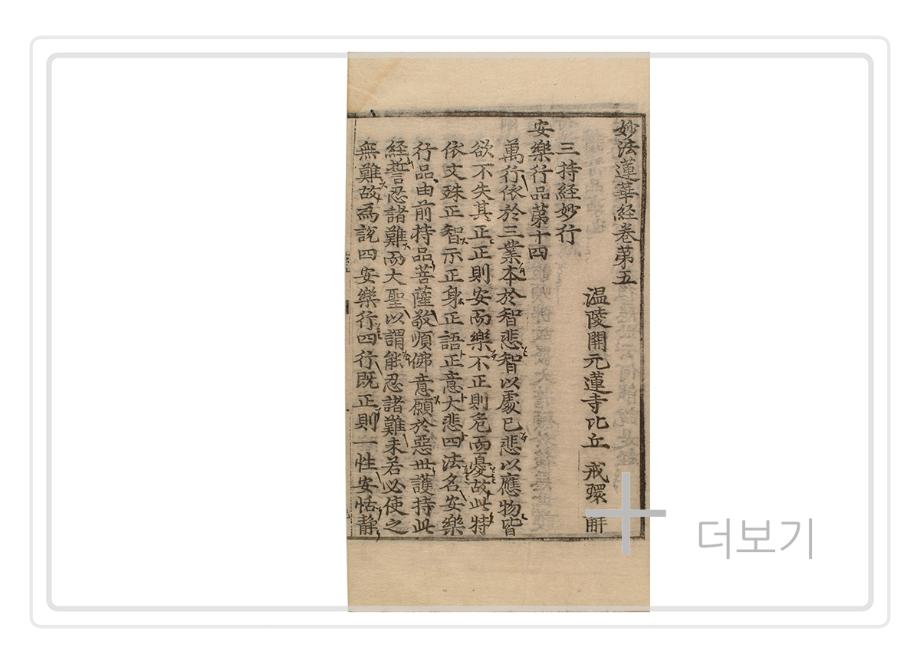 妙法蓮華経卷苐五
温陵開元蓮寺比丘 戒環 解
三持経妙行
安樂行品苐十四
萬行依於三業本於智悲智以處已悲以應物皆
欲不失其正正則安而樂不正則危而憂故此特
依文殊正智示正身正語正意大悲四法名安樂
行品由前持品菩薩敬順佛意願於惡世護持此
経誓忍諸難而大聖以謂能忍諸難未若必使之
無難故爲說四安樂行四行既正則一性安恬靜
더보기